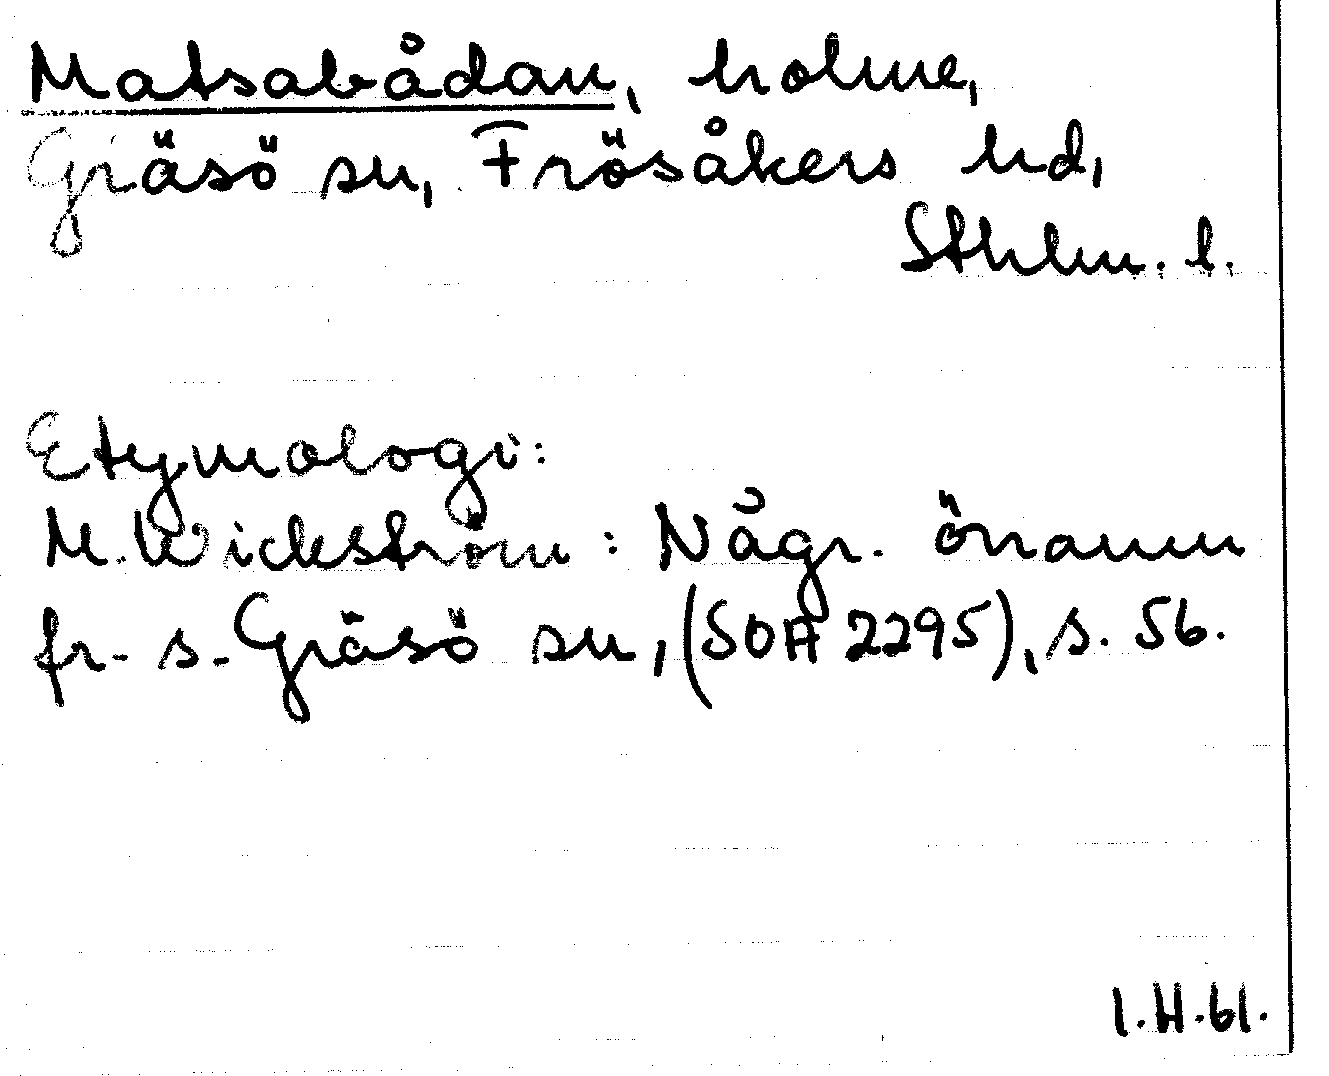 Matsabådan, holme,
Gräsö sn, Frösåkers hd,
Sthlm. l.
Etymologi:
M. Wickström: Någr. önamn
fr. s. Gräsö sn, (SOA 2295), s. 56.
I.H.61.